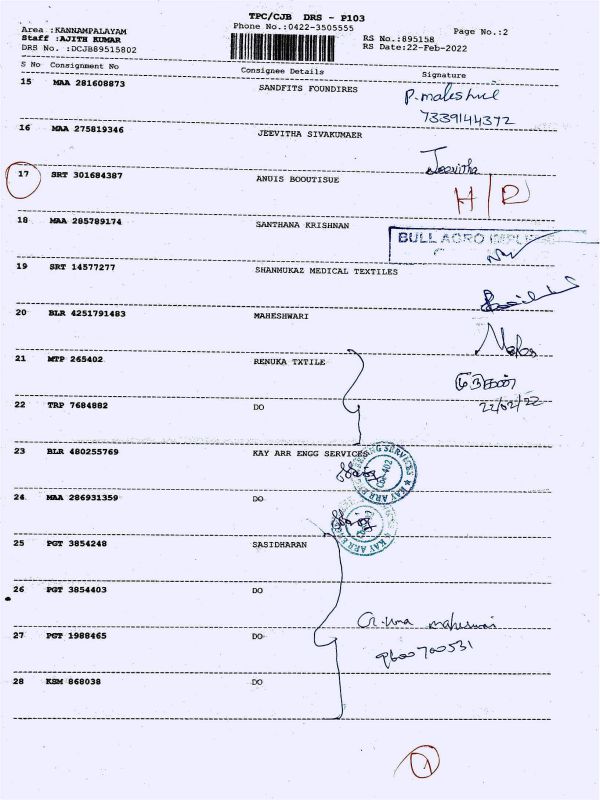 TPC/CJB DRS - P103
Area :KANNAMPALAYAM
Phone No.:0422-3505555
Page No.:2
Staff :AJITH KUMAR
RS No.:895158
DRS No. :DCJB89515802
RS Date:22-Feb-2022
S No Consignment No Consignee Details Signature
15 MAA 281608873 SANDFITS FOUNDIRES
7339144372
16 MAA 275819346 JEEVITHA SIVAKUMAER
Jeevitha
17 SRT 301684387 ANUIS BOOUTISUE
18 MAA 285789174 SANTHANA KRISHNAN
BULL AGRO
19 SRT 14577277 SHANMUKAZ MEDICAL TEXTILES
20 BLR 4251791483 MAHESHWARI
21 MTP 265402 RENUKA TXTILE
22 TRP 7684882 DO
22/02/22
23 BLR 480255769 KAY ARR ENGG SERVICES
24 MAA 286931359 DO
25 PGT 3854248 SASIDHARAN
26 PGT 3854403 DO
27 PGT 1988465 DO
9600700531
28 KSM 868038 DO
1